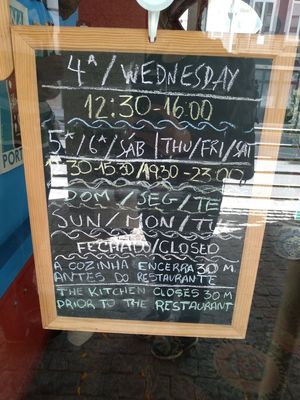 4ª/WEDNESDAY
12:30-16:00
5ª/6ª/SÁB | THU/FRI/SAT
30-15:30/19:30-23:00
DOM/SEG/TE
SUN/MON/TU
FECHADO/CLOSED
A COZINHA ENCERRA 30 M
ANTES DO RESTAURANTE
THE KITCHEN CLOSES 30 M
PRIOR TO THE RESTAURANT
POR